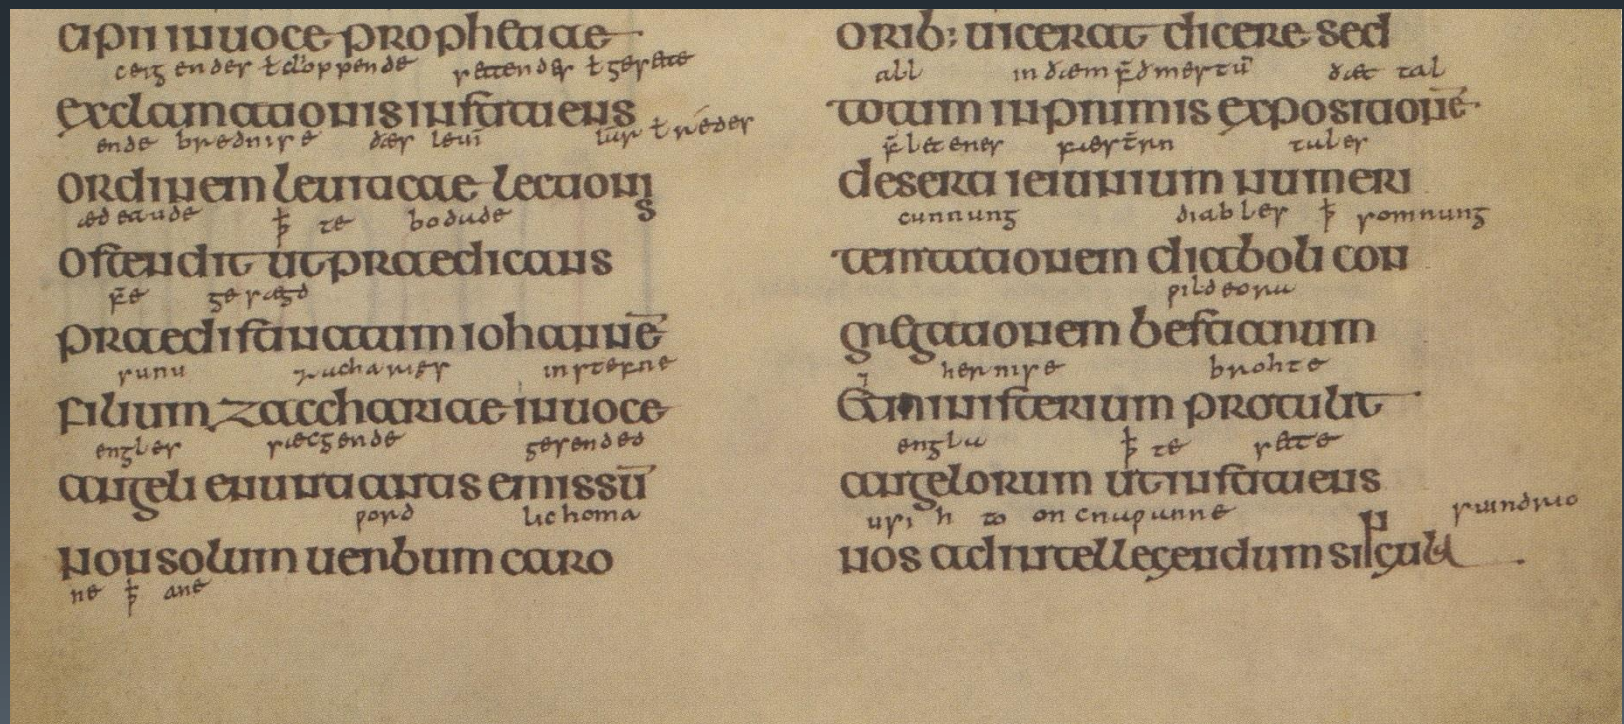 cipii in uoce prophetiae
ceigendes ł cloppende settendes ł gesette
exclamationis instituens
ende brednise ðæs leui lār ł rēdes
ordinem leuiticae lectionis
ædeaude ꝥ te bodade
ostendit ut praedicans
f̄e gesægd
praedistinatum iohannē
sunu zacharies in stefne
filium zacchariae in uoce
engles sæcgende gesended
angeli enuntiantis emissū
ƿord lichoma
non solum uerbum caro
ne ꝥ ane
orib: uicerat dicere sed
all in ðæm f̄dmestū ðæt tal
totum in primis expositionē
f̄letenes fæstērn tales
deserti ieiunium numeri
cunnung diables ꝥ somnung
temtationem diaboli con
ƿildeoru
gregationem bestiarum
⁊ hernise brohte
et ministerium protulit
engla ꝥ te sette
angelorum ut instituens
usih to oncnaƿanne
nos ad intellegendum singula